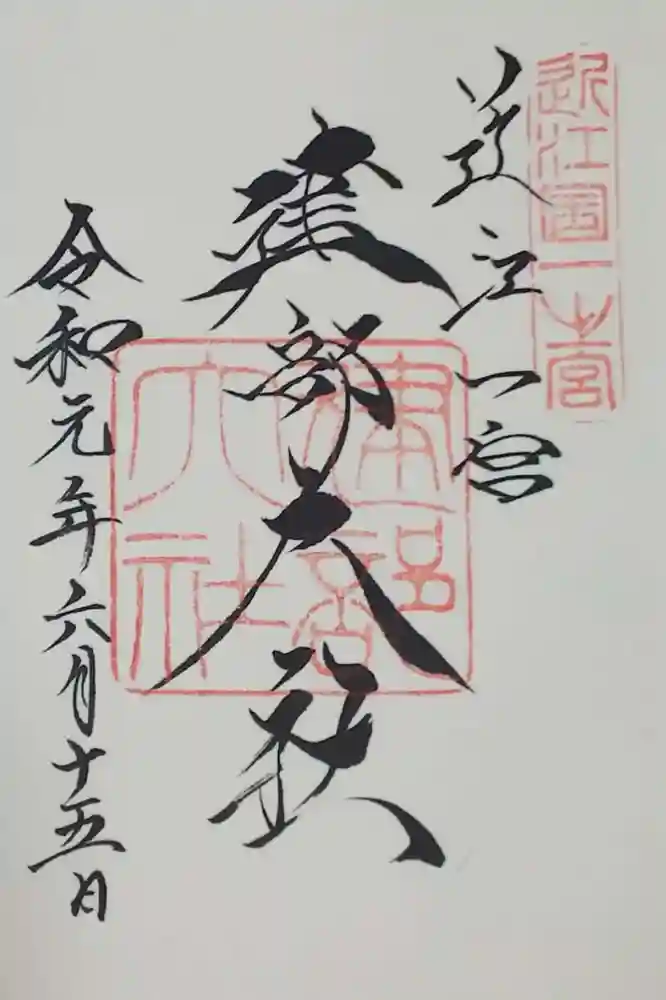 近江國一之宮
近江一宮
建部大社
建部
大社
令和元年六月十五日